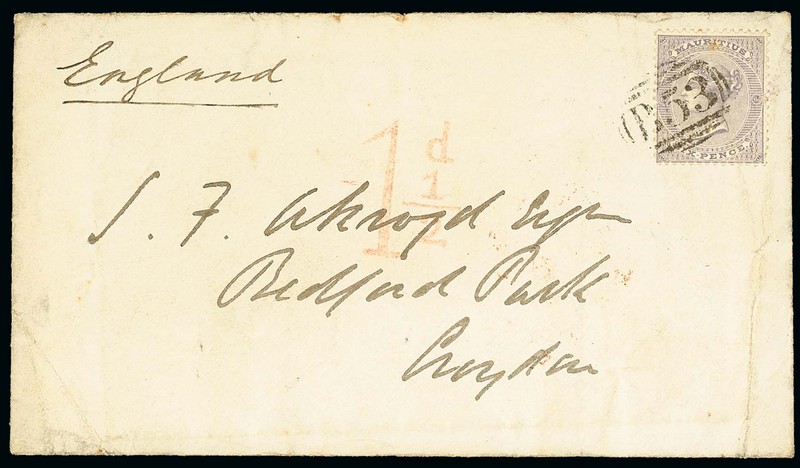 England
MAURITIUS
B53
X PENCE
1d
1/2
S. F. Akroyd Esqre
Bedford Park
Croydon